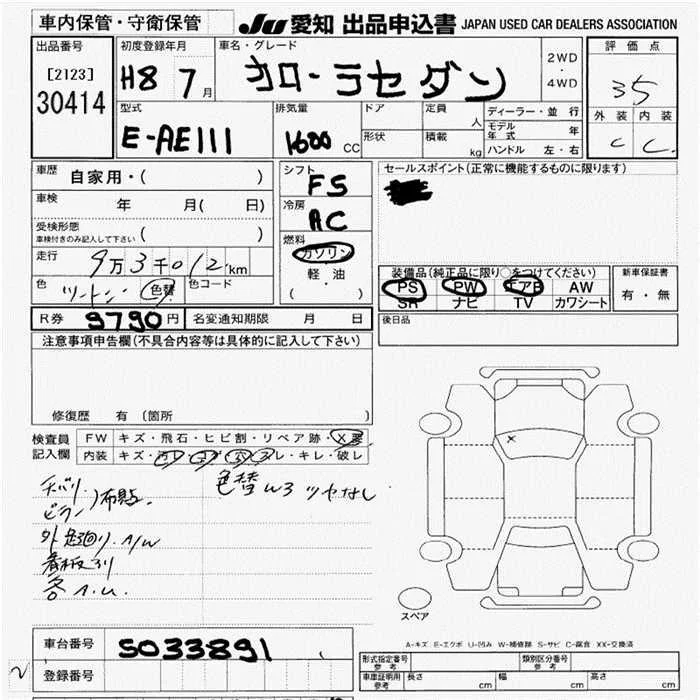 車内保管・守衛保管 JU 愛知 出品申込書 JAPAN USED CAR DEALERS ASSOCIATION
出品番号 初度登録年月 車名・グレード 2WD ・ 4WD 評価点
[2123] 30414 H8 7月 カローラセダン 35
外装 内装
C C
型式 排気量 ドア 定員 人 ディーラー・並行
E-AE111 1600 CC 形状 積載 kg モデル年式 年
ハンドル 左・右
車歴 自家用・( )
車検 年 月( 日)
受検形態 車検付きのみ記入して下さい ( )
走行 9万3千012km
色 ツートン・色替 色コード
シフト FS
冷房 AC
燃料 ガソリン
軽・油
( ・ )
セールスポイント(正常に機能するものに限ります)
装備品(純正品に限り○をつけてください) 新車保証書
PS PW エアB AW 有・無
SR ナビ TV カワシート
R券 9790円 名変通知期限 月 日
後日品
注意事項申告欄(不具合内容等は具体的に記入して下さい)
修復歴 有 (箇所
検査員 FW キズ・飛石・ヒビ割・リペア跡・X要
記入欄 内装 キズ・汚レ・コゲ・穴・スレ・キレ・破レ
色替W3 ツヤなし
布貼
外廻り A/W
看板
各 A.U.
スペア
車台番号 5033891
登録番号
A-キズ E-エクボ U-凹み W-補修跡 S-サビ C-腐食 XX-交換済
形式指定番号 参考 類別区分番号 参考
車庫証明用 参考 長さ cm 幅 cm 高さ cm